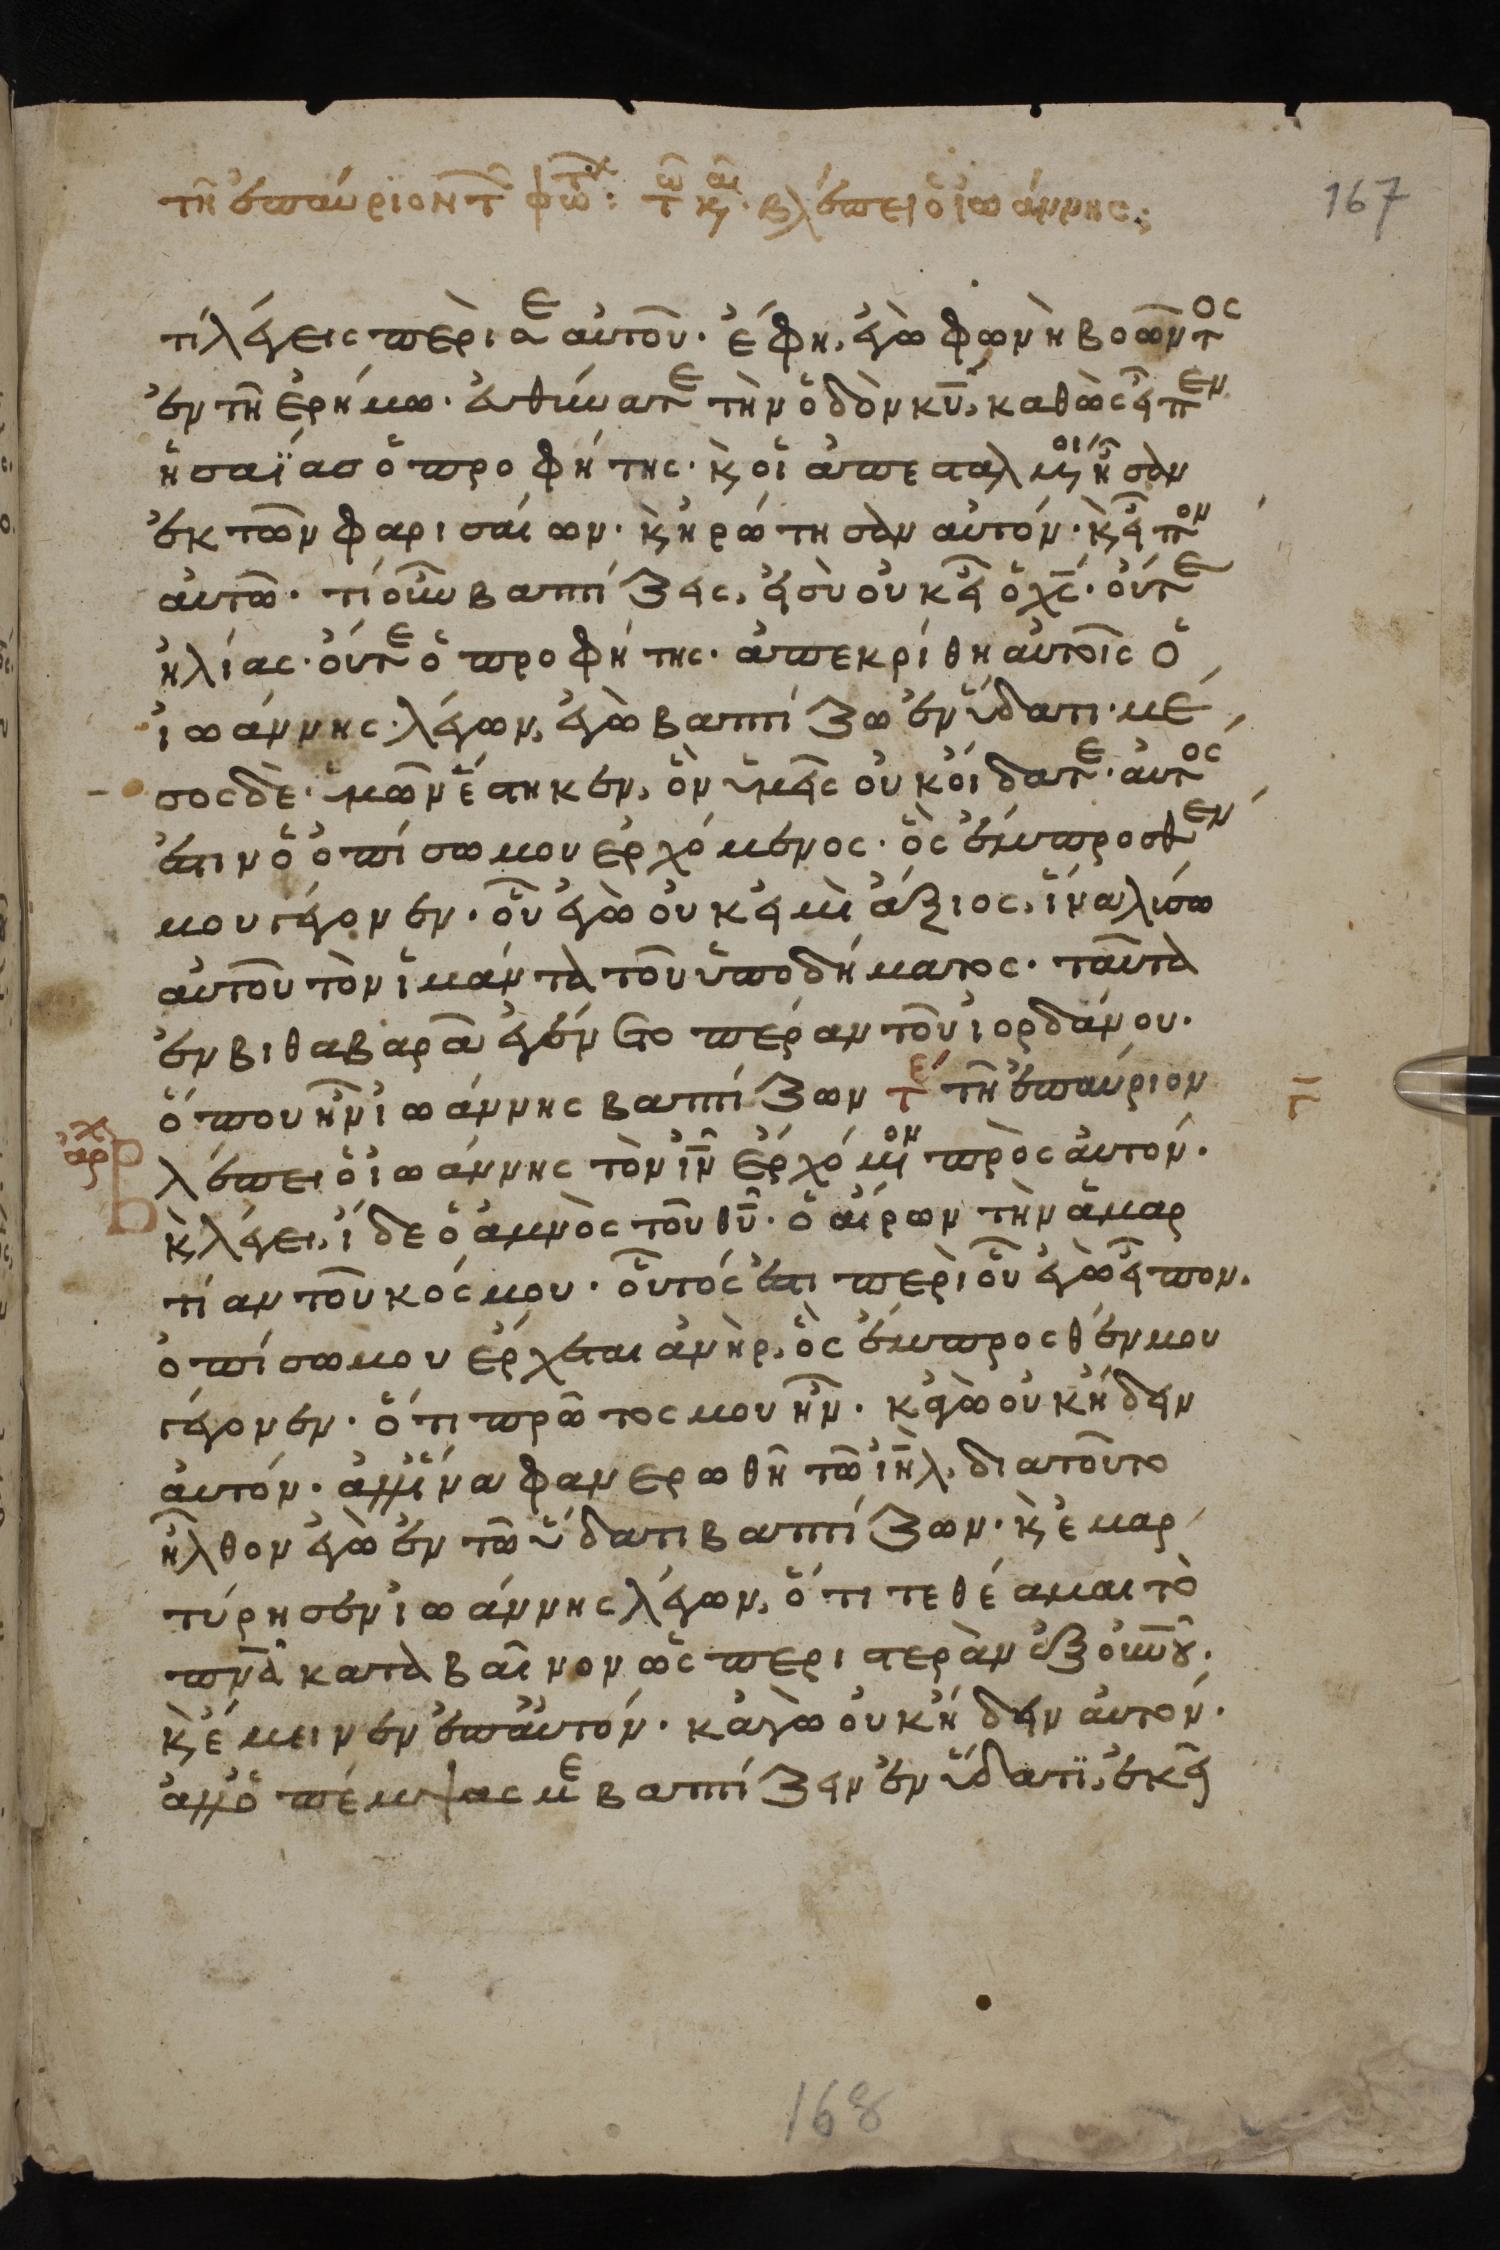 τῆ ἐπαύριον τ φώτ: τ κ. βλέπει ὁ ἰωάννης:
167
τί λέγεις περὶ σεαυτοῦ· ἔφη, ἐγὼ φωνὴ βοῶντος
ἐν τῆ ἐρήμω· εὐθύνατε τὴν ὁδὸν κυ, καθὼς εἶπεν
ἡσαΐας ὁ προφήτης· κ οἱ ἀπεσταλμένοι ἦσαν
ἐκ τῶν φαρισαίων· κ ἠρώτησαν αὐτόν· κ εἶπον
αὐτῶ· τί οὖν βαπτίζεις, εἰ σὺ οὐκ εἶ ὁ χς· οὔτε
ἠλίας· οὔτε ὁ προφήτης· ἀπεκρίθη αὐτοῖς ὁ
ἰωάννης· λέγων, ἐγὼ βαπτίζω ἐν ὕδατι· μέ
σος δὲ· ὑμῶν ἕστηκεν, ὃν ὑμεῖς οὐκ οἴδατε· αὐτός
ἐστιν ὁ ὀπίσω μου ἐρχόμενος· ὃς ἔμπροσθεν
μου γέγονεν· οὗ ἐγὼ οὐκ εἰμὶ ἄξιος, ἵνα λύσω
αὐτοῦ τὸν ἱμάντα τοῦ ὑποδήματος· ταῦτα
ἐν βιθαβαρᾶ ἐγένετο πέραν τοῦ ἰορδάνου·
ὅπου ἦν ἰωάννης βαπτίζων τε τῆ ἐπαύριον
αρχ β
λέπει ὁ ἰωάννης τὸν ιν ἐρχόμενον πρὸς αὐτόν·
κ λέγει, ἴδε ὁ ἀμνὸς τοῦ θυ· ὁ αἴρων τὴν ἁμαρ
τίαν τοῦ κόσμου· οὗτός ἐστι περὶ οὗ ἐγὼ εἶπον·
ὀπίσω μου ἔρχεται ἀνὴρ, ὃς ἔμπροσθέν μου
γέγονεν· ὅτι πρῶτος μου ἦν· κἀγὼ οὐκ ἤδειν
αὐτόν· ἀλλ' ἵνα φανερωθῆ τῶ ιηλ, διατοῦτο
ἦλθον ἐγὼ ἐν τῶ ὕδατι βαπτίζων· κ ἐμαρ
τύρησεν ἰωάννης λέγων, ὅτι τεθέαμαι τὸ
πνα καταβαῖνον ὡς περιστερὰν ἐξ οὐνου·
κ ἔμεινεν ἐπ' αὐτόν· κἀγὼ οὐκ ἤδειν αὐτόν·
ἀλλ' ὁ πέμψας με βαπτίζειν ἐν ὕδατϊ, ἐκεῖ
168